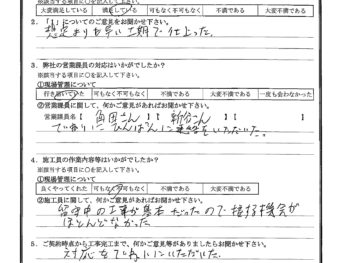 ※該当する項目に○を記入して下さい。
大変満足している 満足している 可もなく不可もなく 不満である 大変不満である
2．「1」についてのご意見をお聞かせ下さい。
想定よりも早い工期で仕上った。
3．弊社の営業議員の対応はいかがでしたか？
※該当する項目に○を記入して下さい。
①現場管理について
行き届いていた 可もなく不可もなく 不満である 大変不満である 一度も会わなかった
②営業議員に関して、何かご意見があればお聞かせ下さい。
営業議員名【 角田さん 】【 新谷さん 】
ていねいに ひんぱんに 連絡をいただいた。
4．施工員の作業内容等はいかがでしたか？
※該当する項目に○を記入して下さい。
①現場管理について
良くやってくれた 可もなく不可もなく 不満である 大変不満である
②施工員に関して、何かご意見があればお聞かせ下さい。
留守中の工事が基本だったので接する機会が
ほとんどなかった
5．ご契約時点から工事完工まで、何かご意見等がありましたらお聞かせ下さい。
対応をていねいにいただいた。